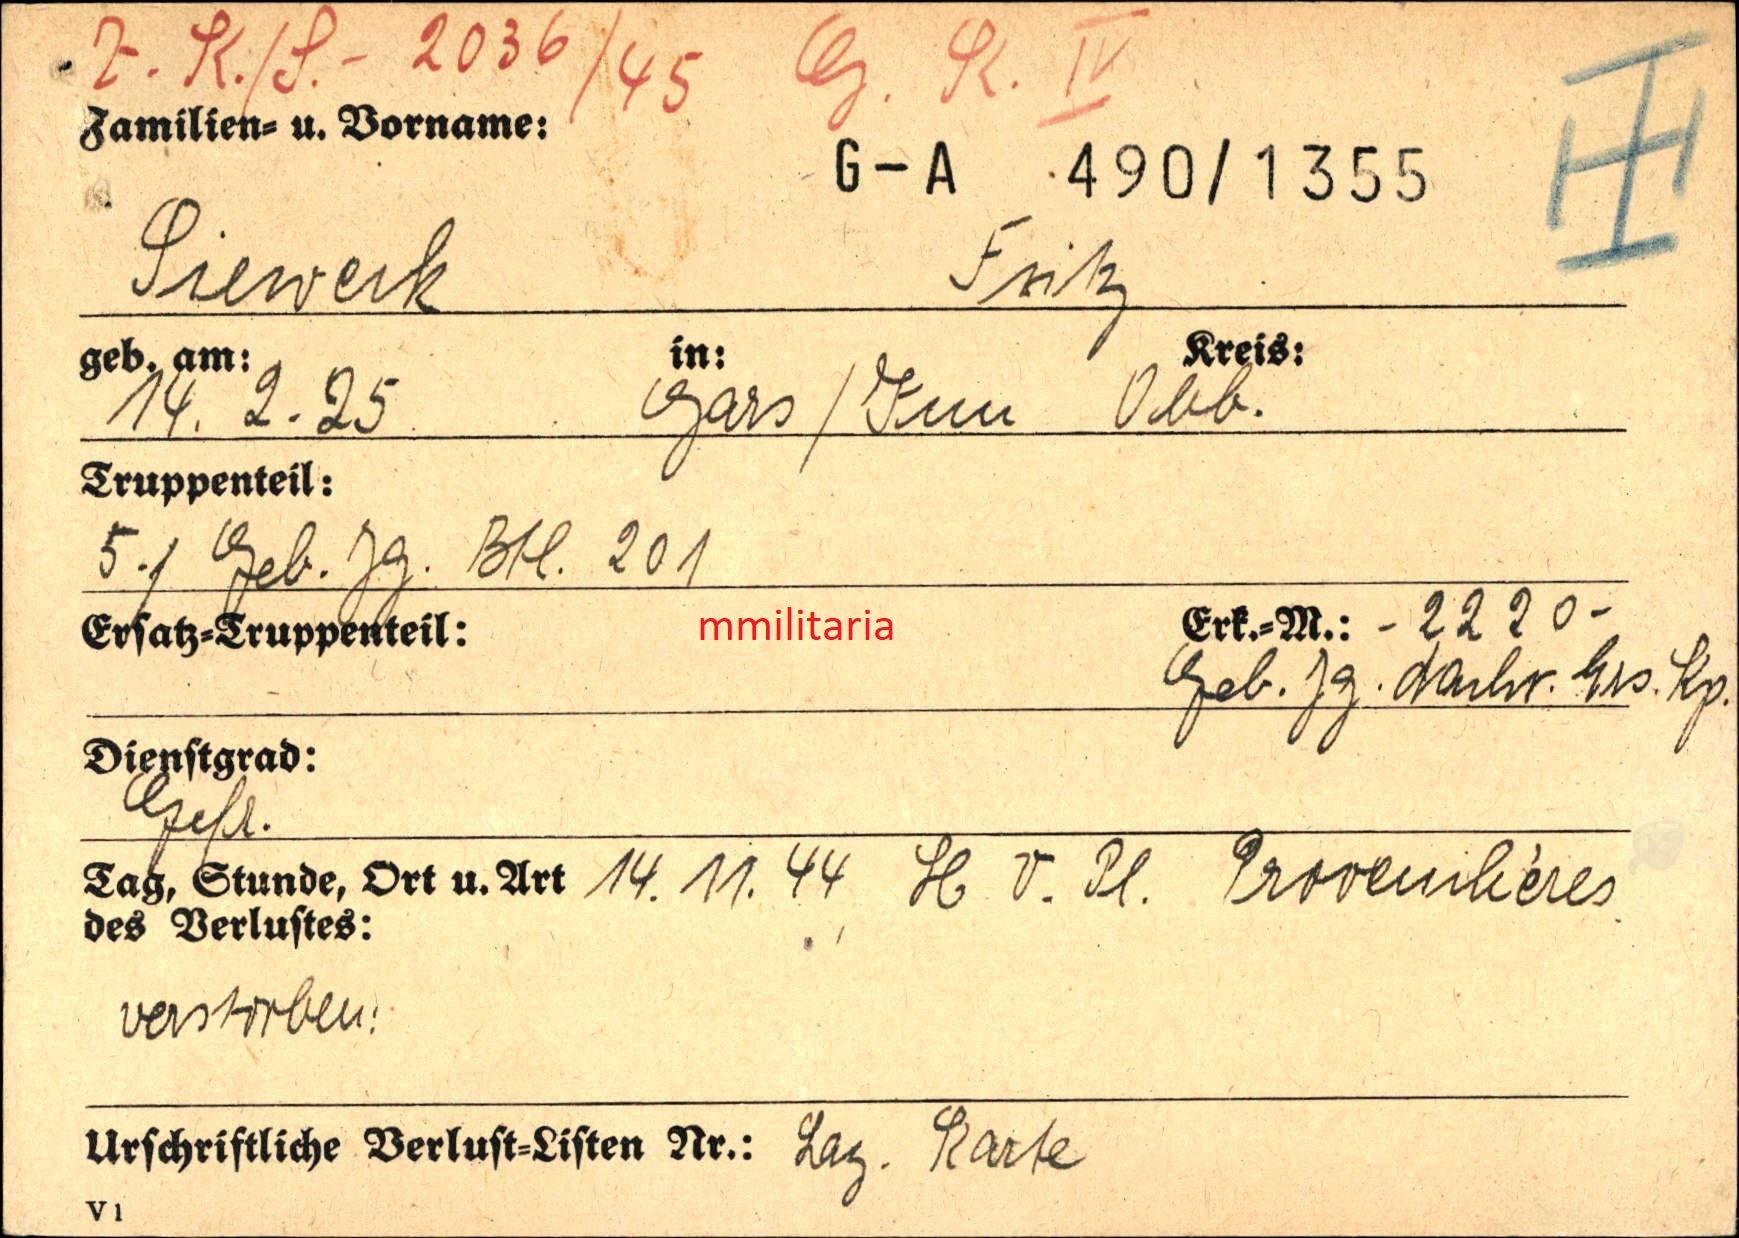 Z. K./S. - 2036/45 G. K. IV
III
Familien- u. Vorname:
G-A 490/1355
Siewerk Fritz
geb. am: in: Kreis:
14. 2. 25 Gars/Inn Obb.
Truppenteil:
5./ Geb. Jg. Btl. 201
Ersatz-Truppenteil: mmilitaria Erk.-M.: - 2220 -
Geb. Jg. Nachr. Ers. Kp.
Dienstgrad:
Gefr.
Tag, Stunde, Ort u. Art 14. 11. 44 H V. Pl. Provenchères
des Verlustes:
verstorben.
Urschriftliche Verlust-Listen Nr.: Laz. Karte
V 1